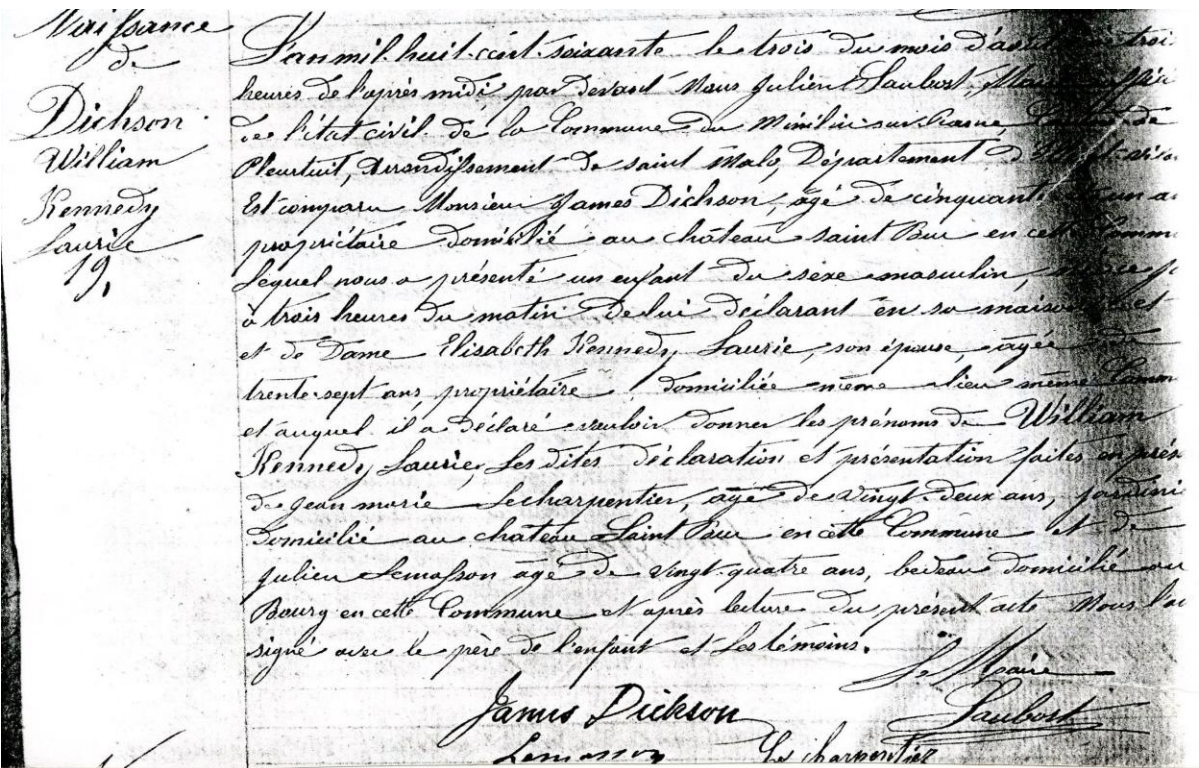 Naissance
de
Dickson
William
Kennedy
Laurie
19,
L'an mil huit cent soixante le trois du mois d'août trois
heures de l'après midi, par devant Nous Julien Saubost, Maire
de l'état civil de la Commune du Minihic sur Rance, Canton de
Pleurtuit, Arrondissement de saint Malo, Département d'
Est comparu Monsieur James Dickson, agé de cinquante un
propriétaire domicilié au château saint Buc en cette Commune
Lequel nous a présenté un enfant du sèxe masculin, né ce
à trois heures du matin de lui déclarant en sa maison et
et de Dame Elisabeth Kennedy Laurie, son épouse, agée de
trente-sept ans, propriétaire, domiciliée même lieu même Comm
et auquel il a déclaré vouloir donner les prénoms de William
Kennedy Laurie, Les dites déclaration et présentation faites en prés
de Jean marie Lecharpentier, agé de vingt-deux ans, jardini
Domicilié au château Saint Buc en cette Commune et de
Julien Lemasson agé de vingt-quatre ans, bedeau domicilié au
Bourg en cette Commune et après lecture du présent acte Nous l'a
signé avec le père de l'enfant et Les témoins.
Le Maire
James Dickson Saubost
Lemasson Le charpentier